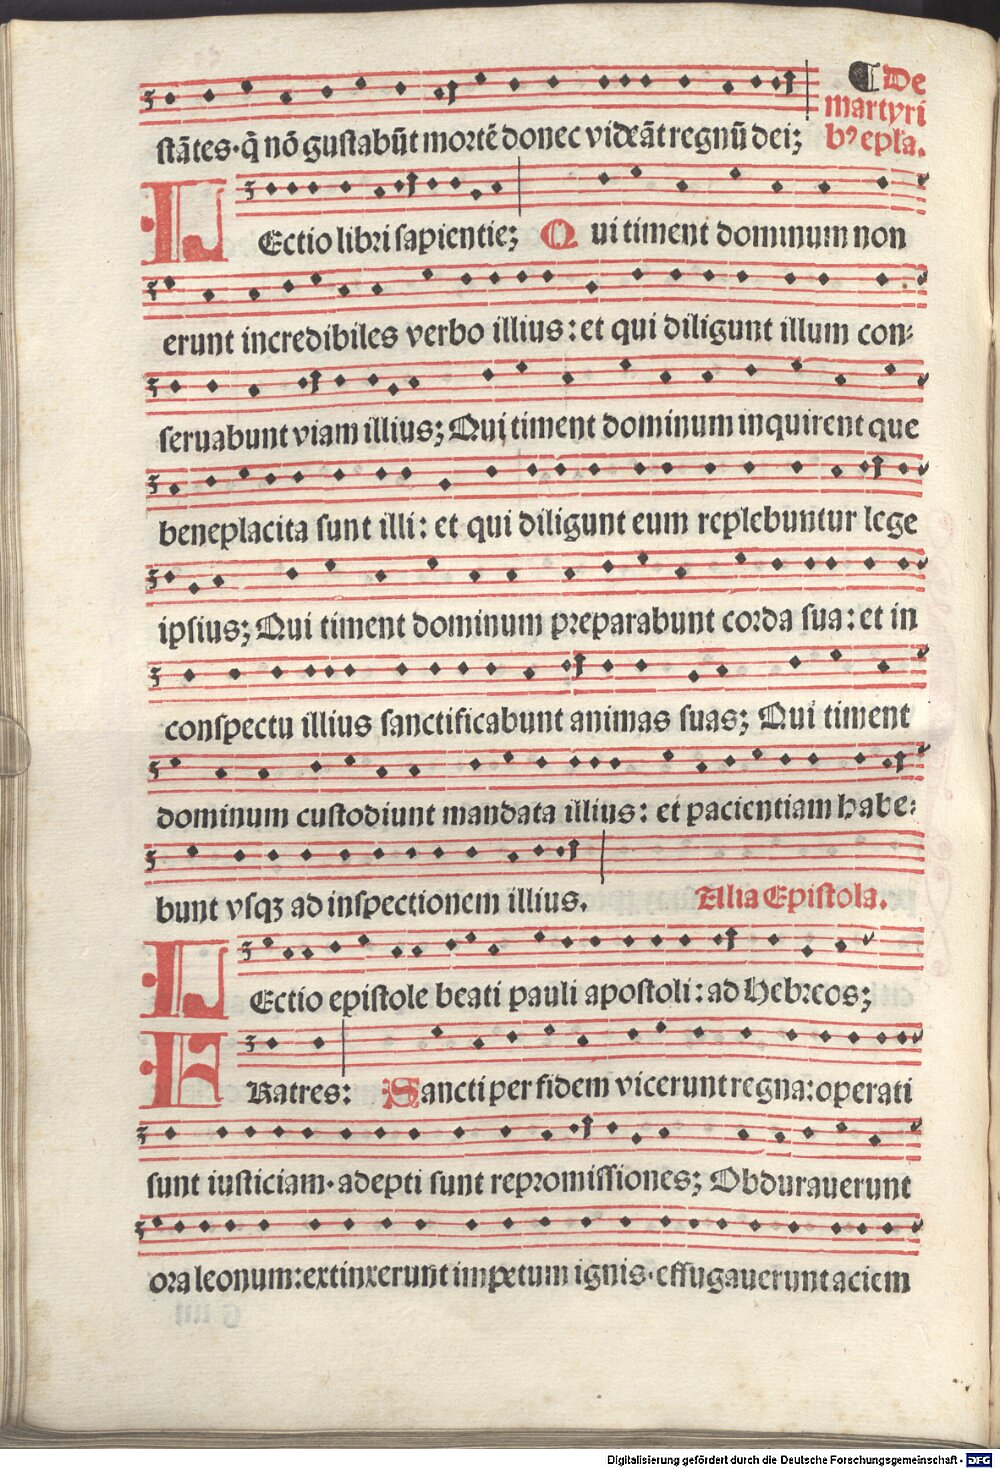 stātes·q̄ nō gustabūt mortē donec videāt regnū dei;
¶ De
martyri
bꝰ epl̄a.
LEctio libri sapientie; Qui timent dominum non
erunt incredibiles verbo illius: et qui diligunt illum con⸗
seruabunt viam illius; Qui timent dominum inquirent que
beneplacita sunt illi: et qui diligunt eum replebuntur lege
ipsius; Qui timent dominum preparabunt corda sua: et in
conspectu illius sanctificabunt animas suas; Qui timent
dominum custodiunt mandata illius: et pacientiam habe⸗
bunt vsqꝫ ad inspectionem illius.
Alia Epistola.
LEctio epistole beati pauli apostoli: ad Hebreos;
FRatres: Sancti per fidem vicerunt regna: operati
sunt iusticiam· adepti sunt repromissiones; Obdurauerunt
ora leonum: extinxerunt impetum ignis· effugauerunt aciem
Digitalisierung gefördert durch die Deutsche Forschungsgemeinschaft - DFG